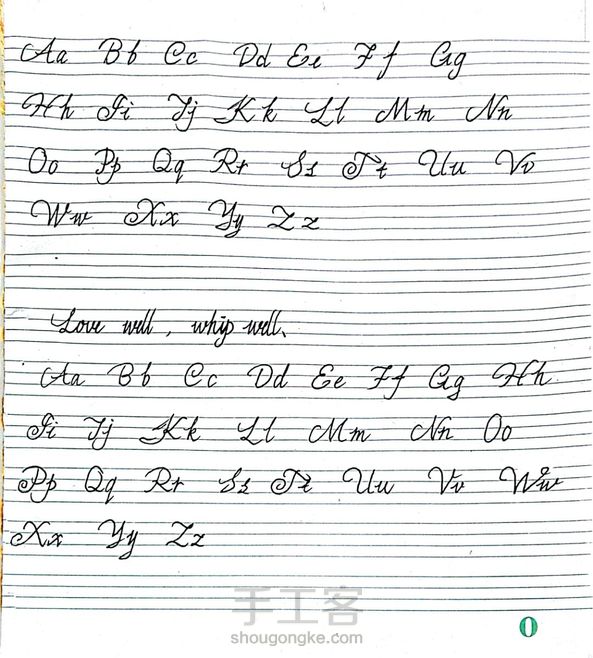 Aa Bb Cc Dd Ee Ff Gg
Hh Ii Jj Kk Ll Mm Nn
Oo Pp Qq Rr Ss Tt Uu Vv
Ww Xx Yy Zz
Love well, whip well.
Aa Bb Cc Dd Ee Ff Gg Hh
Ii Jj Kk Ll Mm Nn Oo
Pp Qq Rr Ss Tt Uu Vv Ww
Xx Yy Zz
手工客
shougongke.com
0